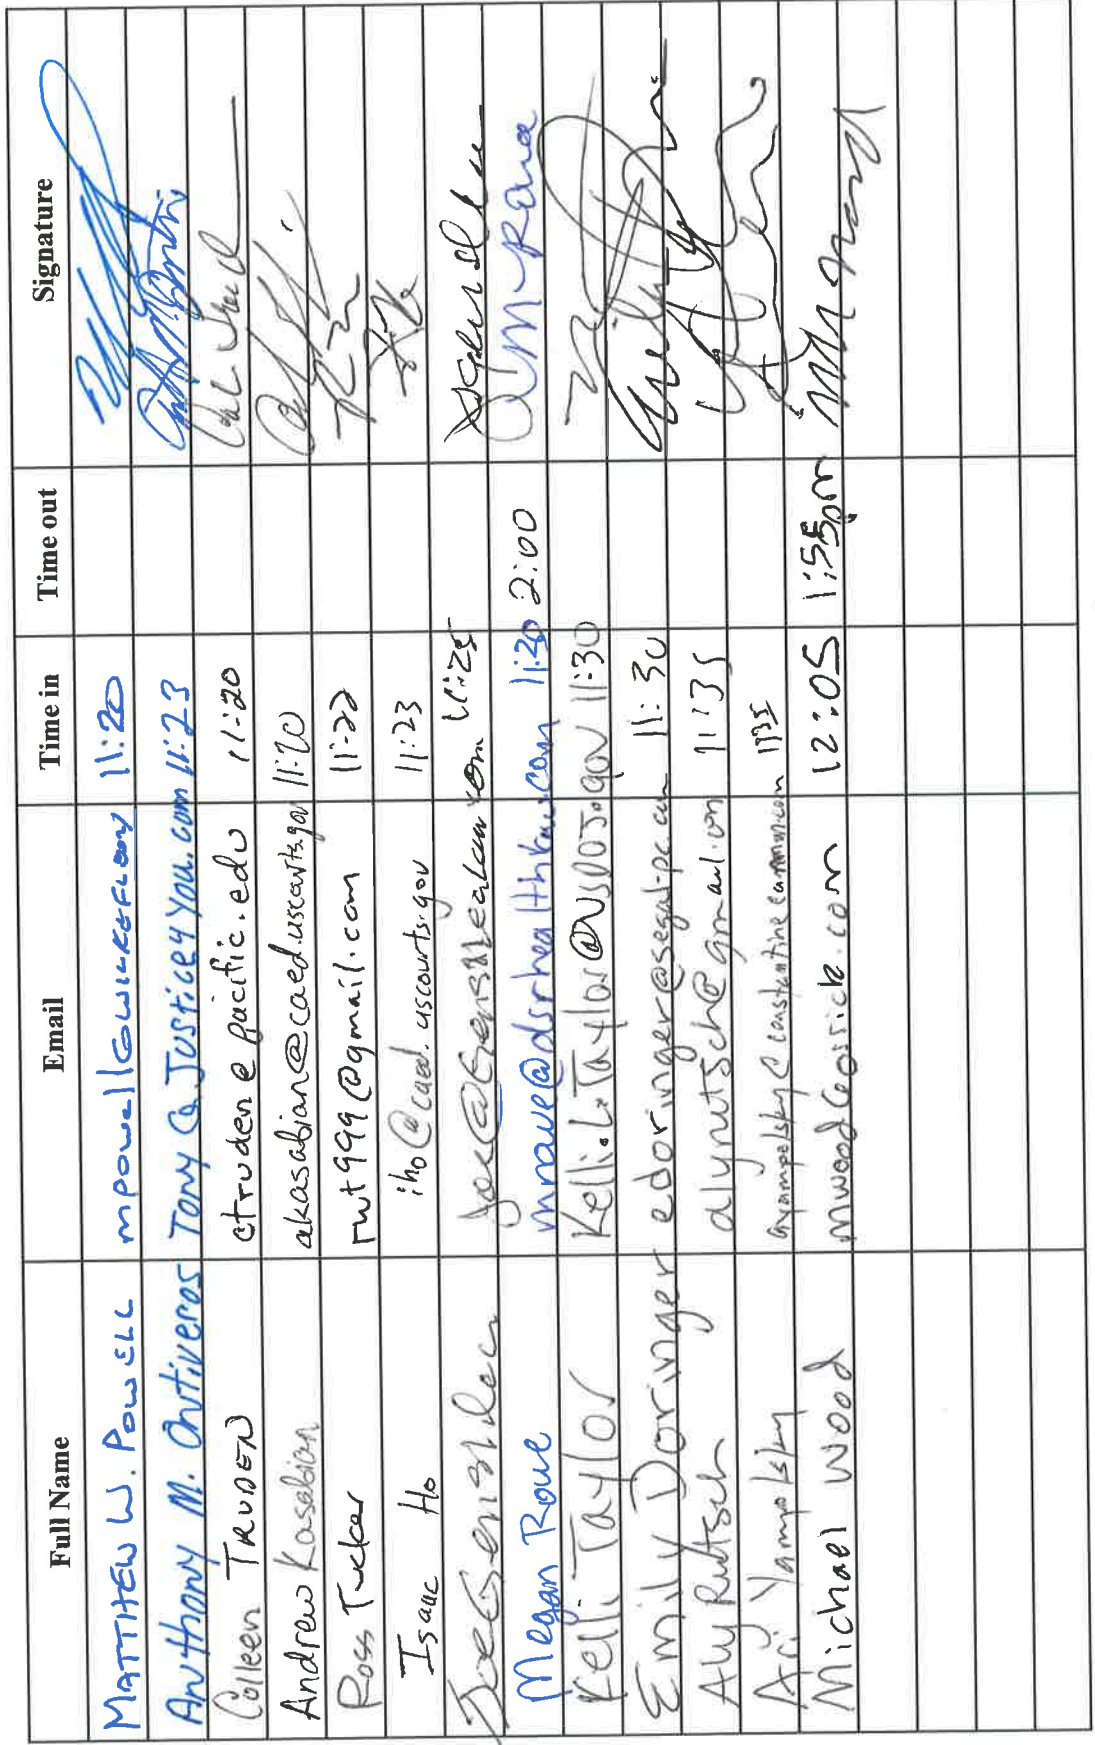 Full Name Email Time in Time out Signature
MATTHEW W. POWELL 11:20
Anthony M. Ontiveros Tony @ JusticeyYou.com 11:23
Colleen TRUDEN ctruden@pacific.edu 11:20
Andrew Kasabian akasabian@caed.uscourts.gov 11:20
Ross Tucker rwt999@gmail.com 11:22
Isaac Ho iho@caed.uscourts.gov 11:23
11:25
Megan Rowe mrowe@dsrhealthlaw.com 11:30 2:00
Kelli Taylor Kelli.L.Taylor@USDOJ.gov 11:30
Emily Doringer edoringer@segal-pc.com 11:30
Aly Rutsch alyrutsch@gmail.com 11:35
Ari Yampolsky ayampolsky@constantinecannon.com 1135
Michael Wood 12:05 1:55pm